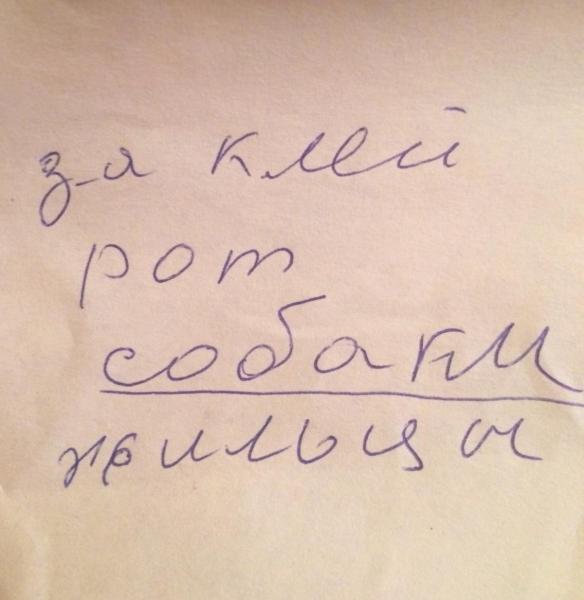 за клей
рот
собаки
жильцы